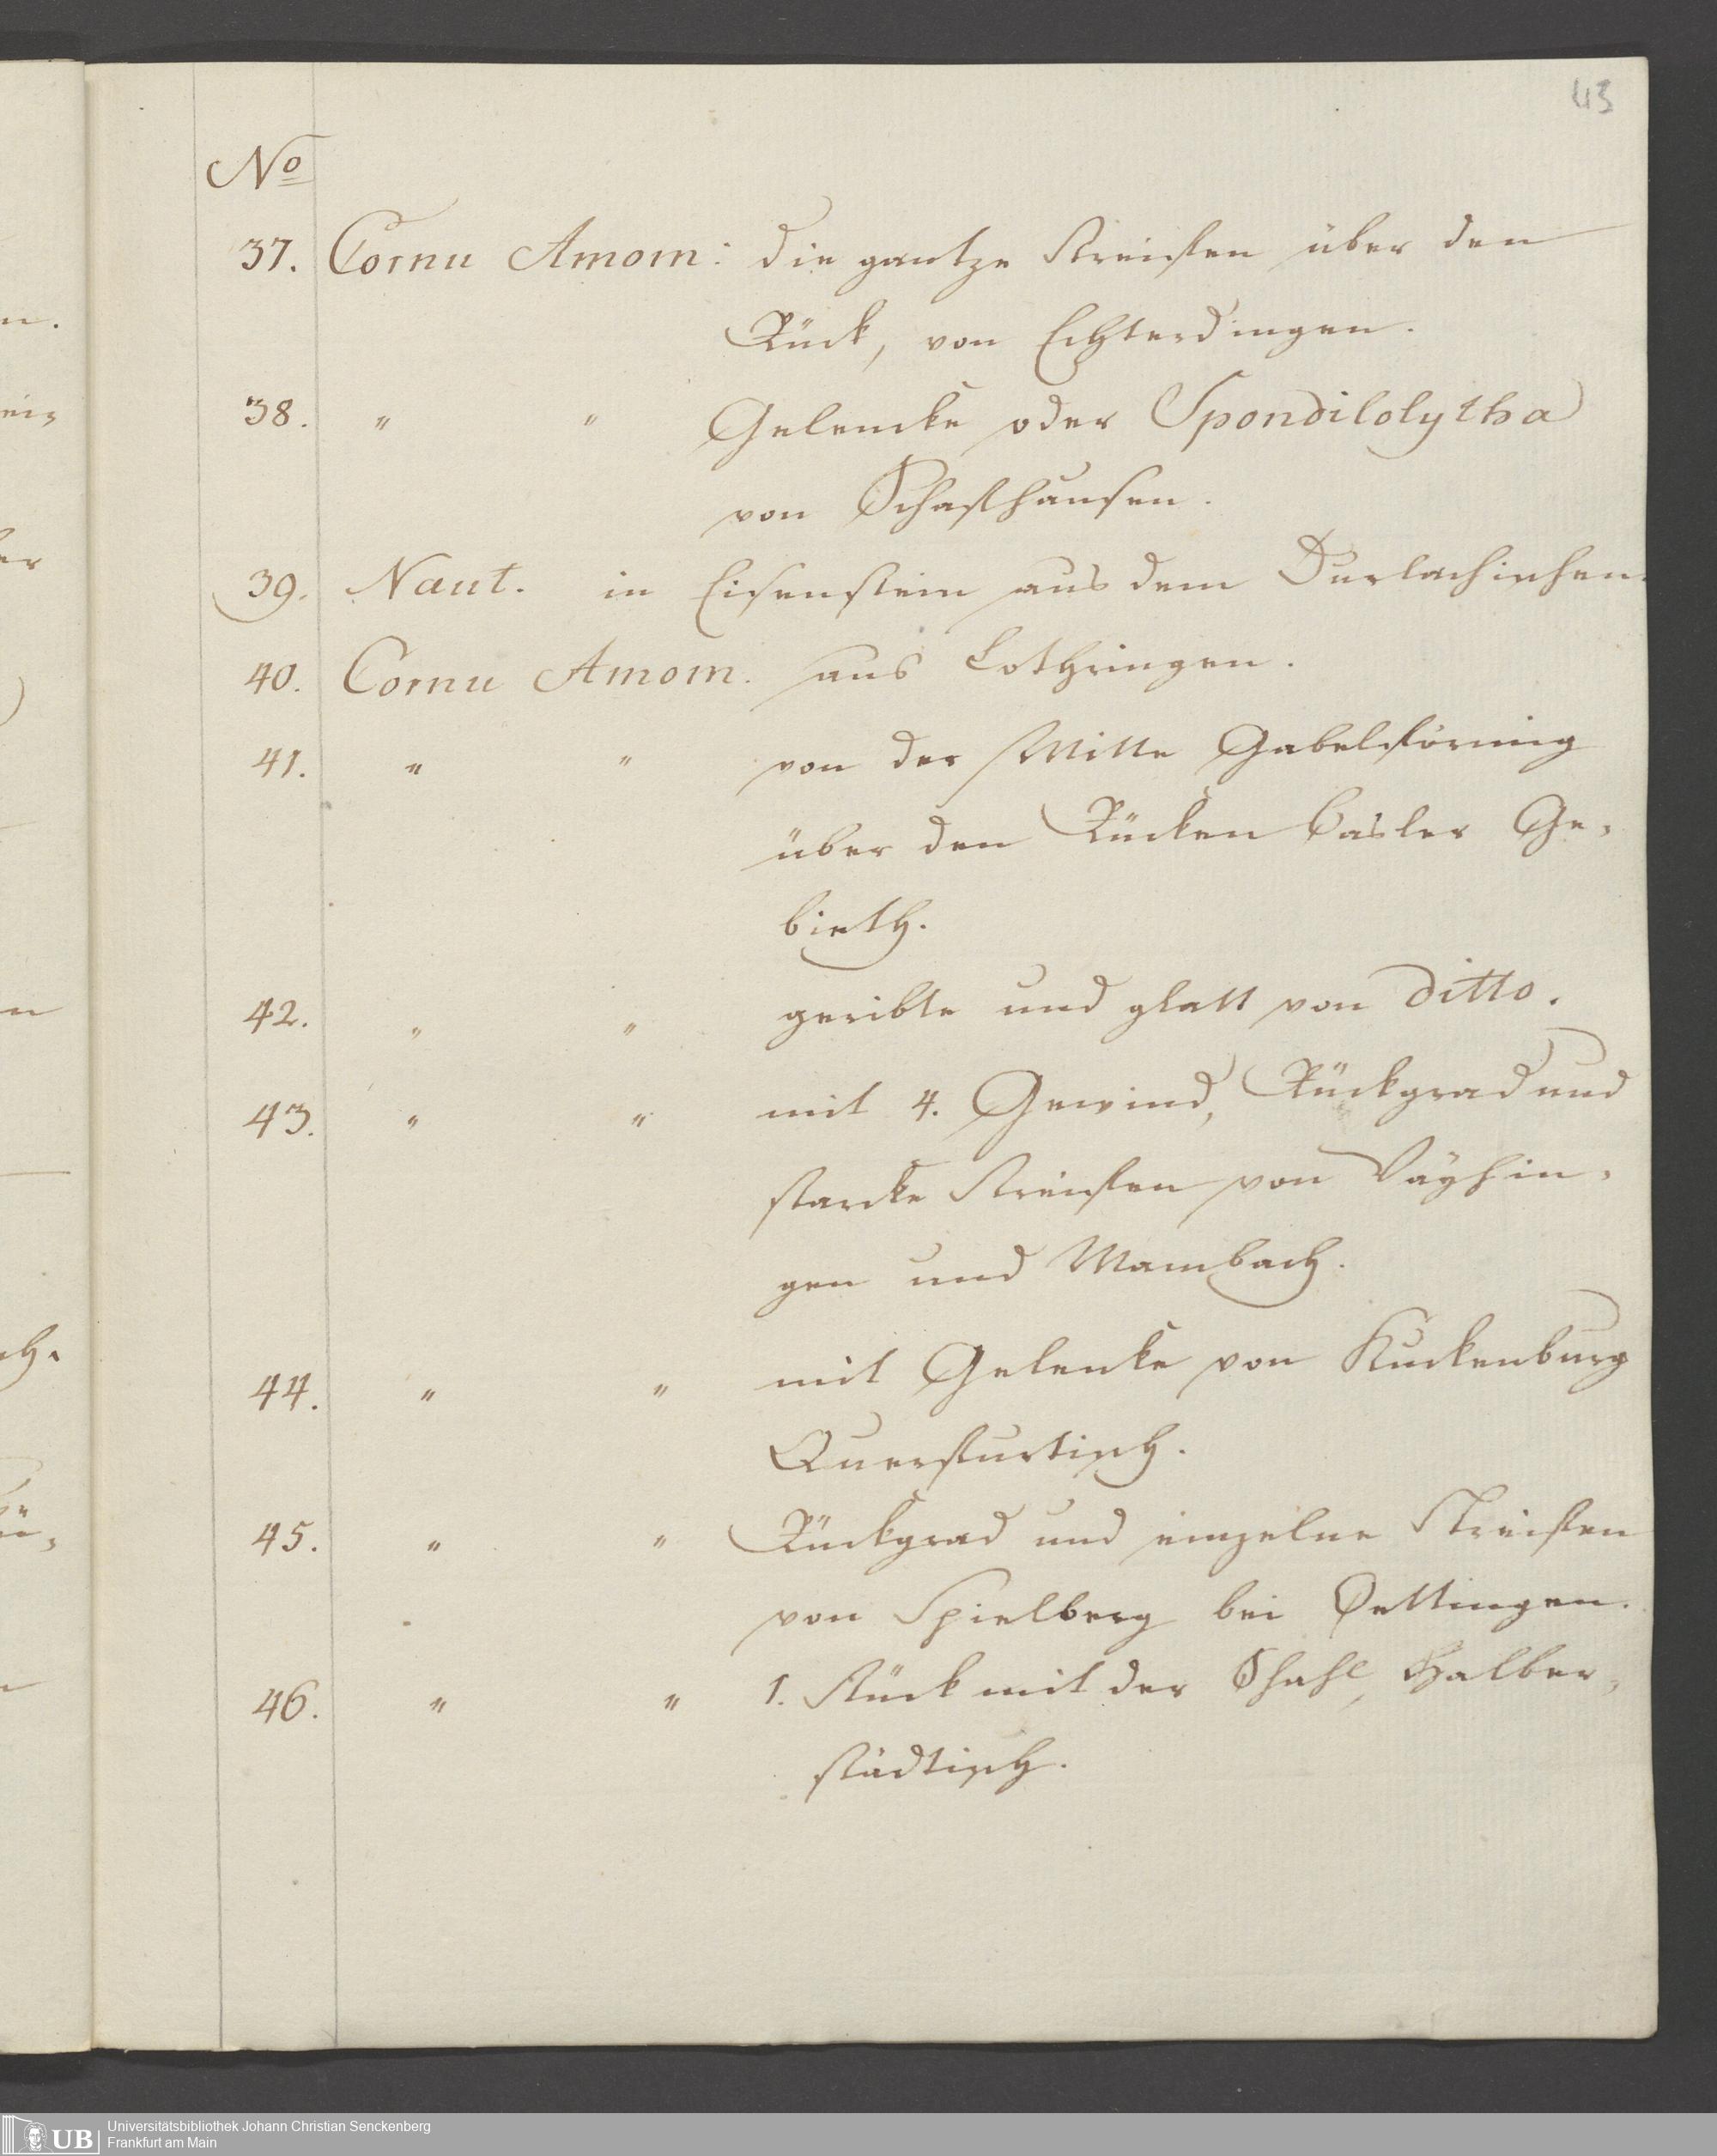 43
No
37. Cornu Amom: die gantze Streiffen über den
Rück, von Echterdingen.
38. " " Gelencke oder Spondilolytha
von Schaffhausen.
39. Naut. in Eisenstein aus dem Durlachischen
40. Cornu Amom. aus Lothringen.
41. " " von der Mitte Gabelförmig
über den Rücken Basler Ge-
bieth.
42. " " geribte und glatt von ditto.
43. " " mit 4. Gewind, Rückgrad und
starcke Streiffen von Väyhin-
gen und Wambach.
44. " " mit Gelenke von Kuckenburg
Querfurtisch.
45. " " Rückgrad und einzelne Streiffen
von Spielberg bei Oettingen.
46. " " 1. Stück mit der Shahl, Halber-
städtisch.
UB Universitätsbibliothek Johann Christian Senckenberg
Frankfurt am Main